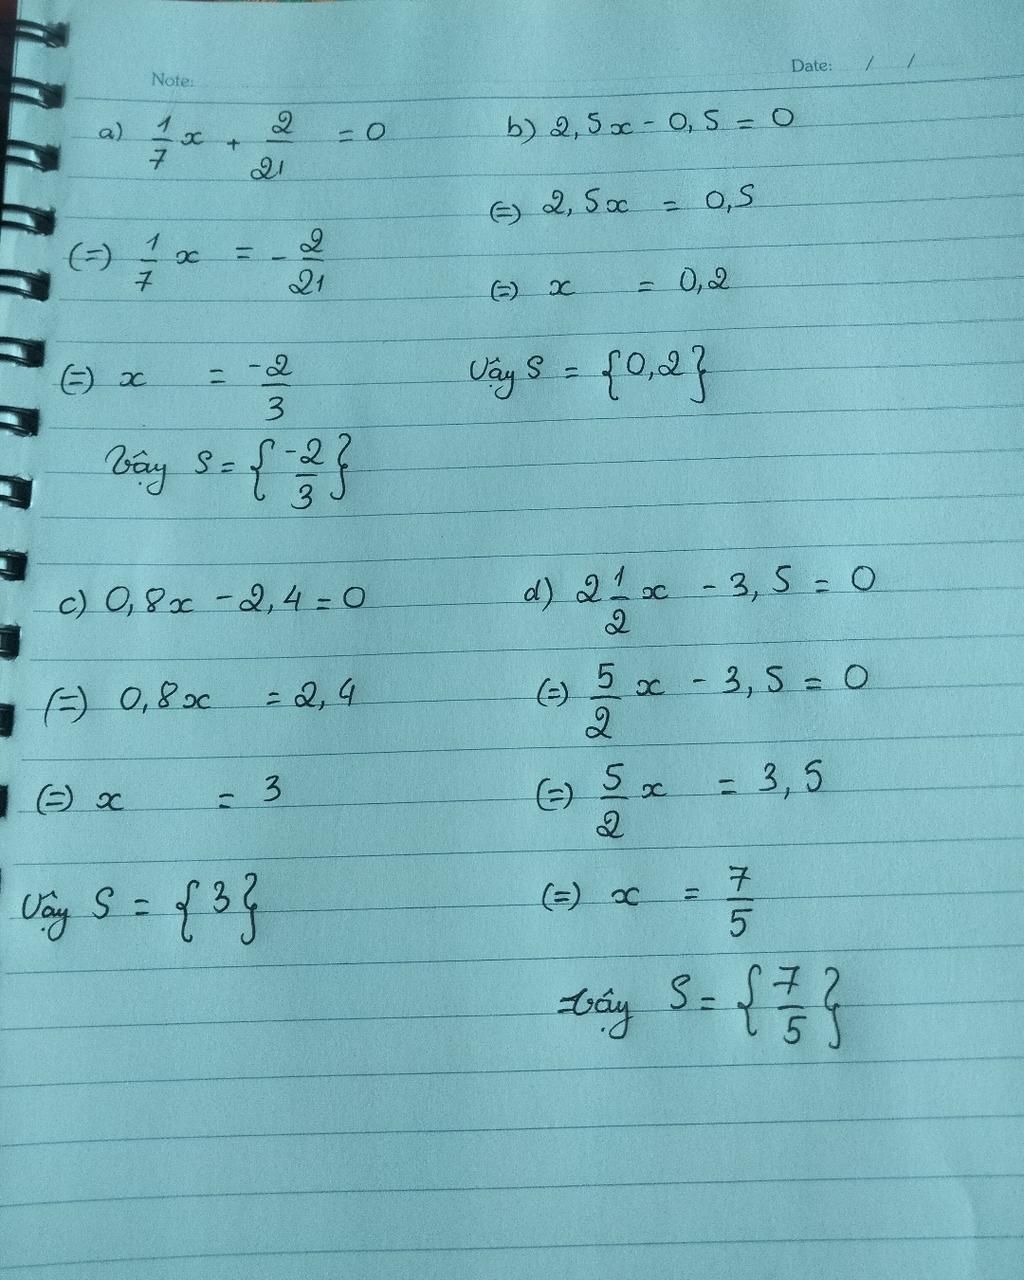 Note:
Date: / /
a) 1/7 x + 2/21 = 0
(=) 1/7 x = - 2/21
(=) x = -2/3
Vậy S = { -2/3 }
b) 2,5x - 0,5 = 0
(=) 2,5x = 0,5
(=) x = 0,2
Vậy S = {0,2}
c) 0,8x - 2,4 = 0
(=) 0,8x = 2,4
(=) x = 3
Vậy S = {3}
d) 2 1/2 x - 3,5 = 0
(=) 5/2 x - 3,5 = 0
(=) 5/2 x = 3,5
(=) x = 7/5
Vậy S = { 7/5 }